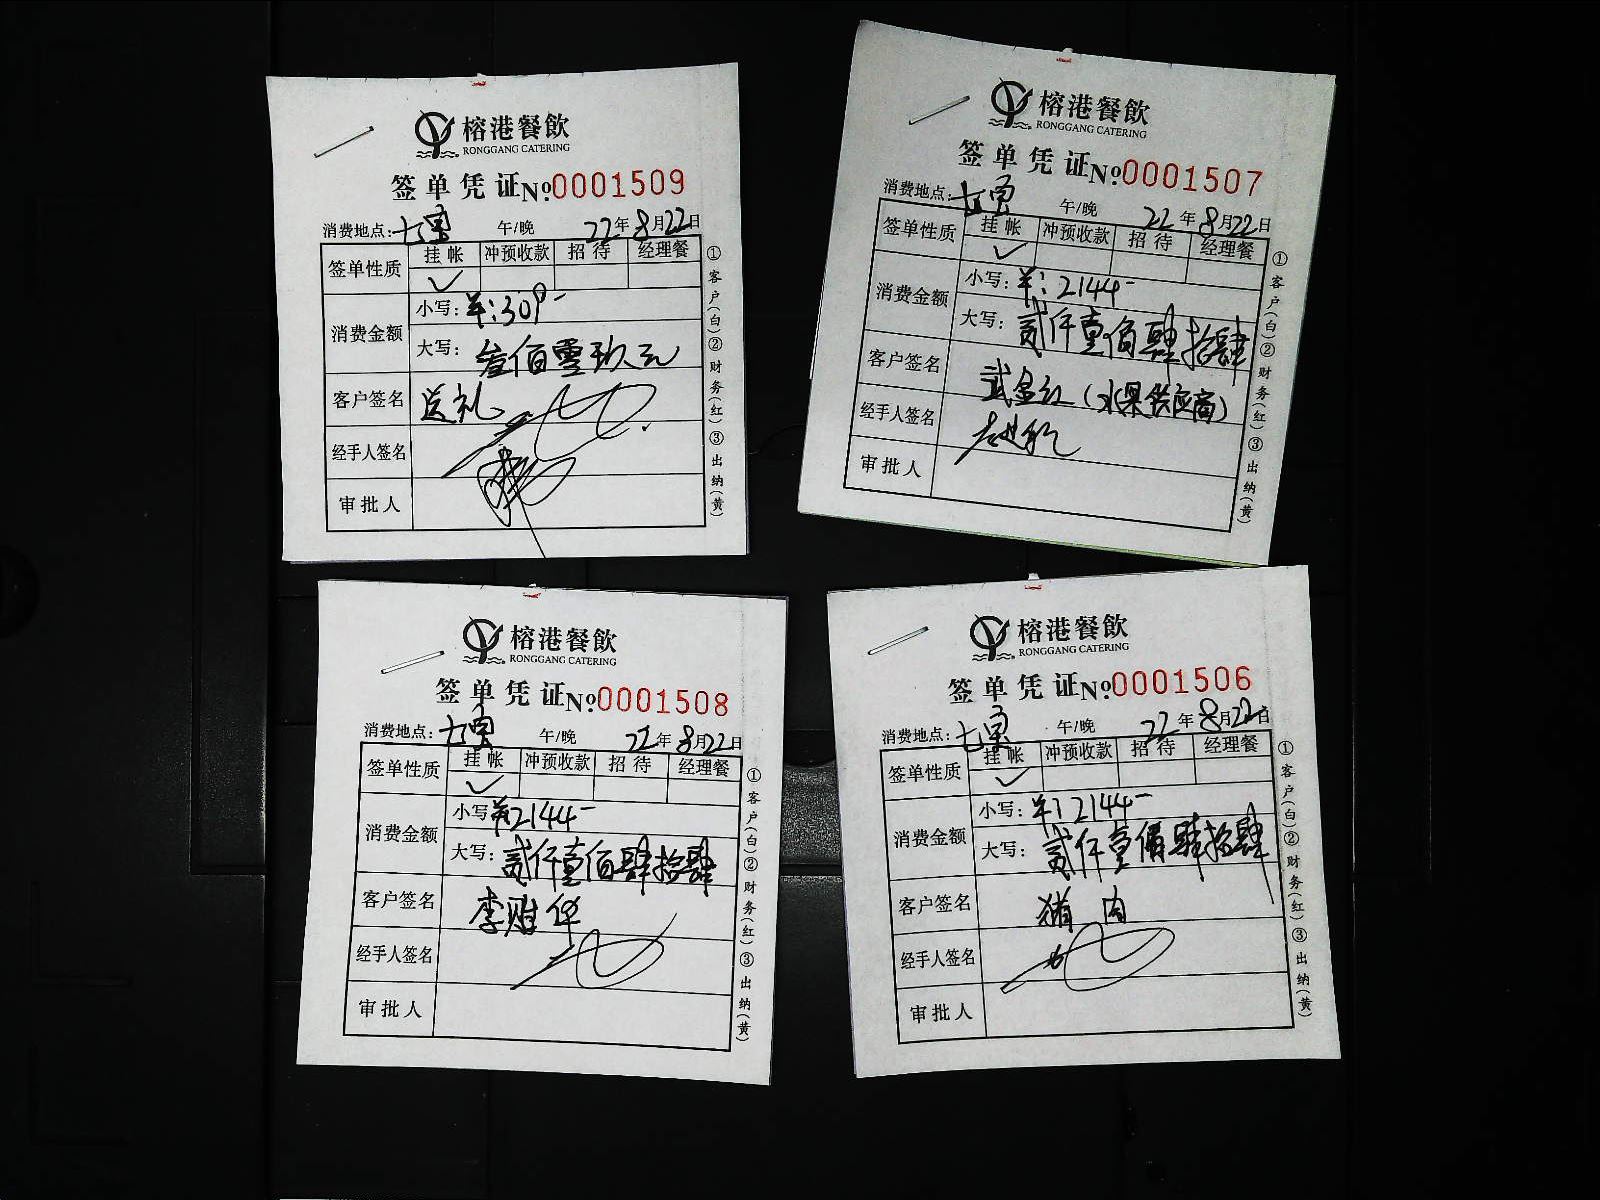 榕港餐飲
RONGGANG CATERING
签单凭证 №0001509
消费地点: 七 午/晚 22年8月22日
签单性质 挂帐 冲预收款 招待 经理餐
✓
消费金额 小写: ¥:309-
大写: 叁佰零玖元
客户签名 送礼
经手人签名
审批人
①客户(白)②财务(红)③出纳(黄)
榕港餐飲
RONGGANG CATERING
签单凭证 №0001507
消费地点: 七 午/晚 22年8月22日
签单性质 挂帐 冲预收款 招待 经理餐
✓
消费金额 小写: ¥:2144-
大写: 贰仟壹佰肆拾肆
客户签名 武金红(水果供应商)
经手人签名
审批人
①客户(白)②财务(红)③出纳(黄)
榕港餐飲
RONGGANG CATERING
签单凭证 №0001508
消费地点: 七 午/晚 22年8月22日
签单性质 挂帐 冲预收款 招待 经理餐
✓
消费金额 小写 ¥2144-
大写: 贰仟壹佰肆拾肆
客户签名 李胜华
经手人签名
审批人
①客户(白)②财务(红)③出纳(黄)
榕港餐飲
RONGGANG CATERING
签单凭证 №0001506
消费地点: 七 午/晚 22年8月22日
签单性质 挂帐 冲预收款 招待 经理餐
✓
消费金额 小写: ¥:2144-
大写: 贰仟壹佰肆拾肆
客户签名 猪肉
经手人签名
审批人
①客户(白)②财务(红)③出纳(黄)